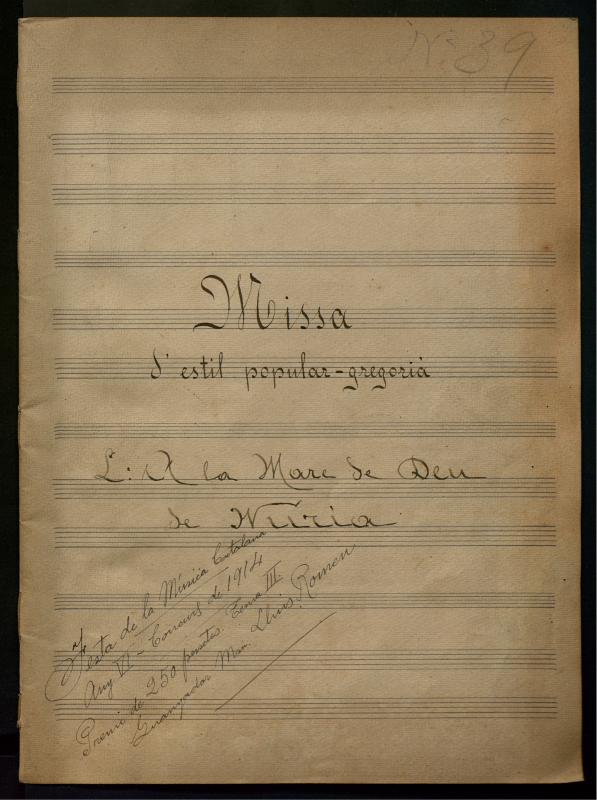 Nº 39
Missa
d'estil popular-gregorià
L: A la Mare de Deu
de Núria
Festa de la Música Catalana
Any VI - Concurs de 1914
Premi de 250 pesetes. Tema III
Guanyador Mn. Lluis Romeu